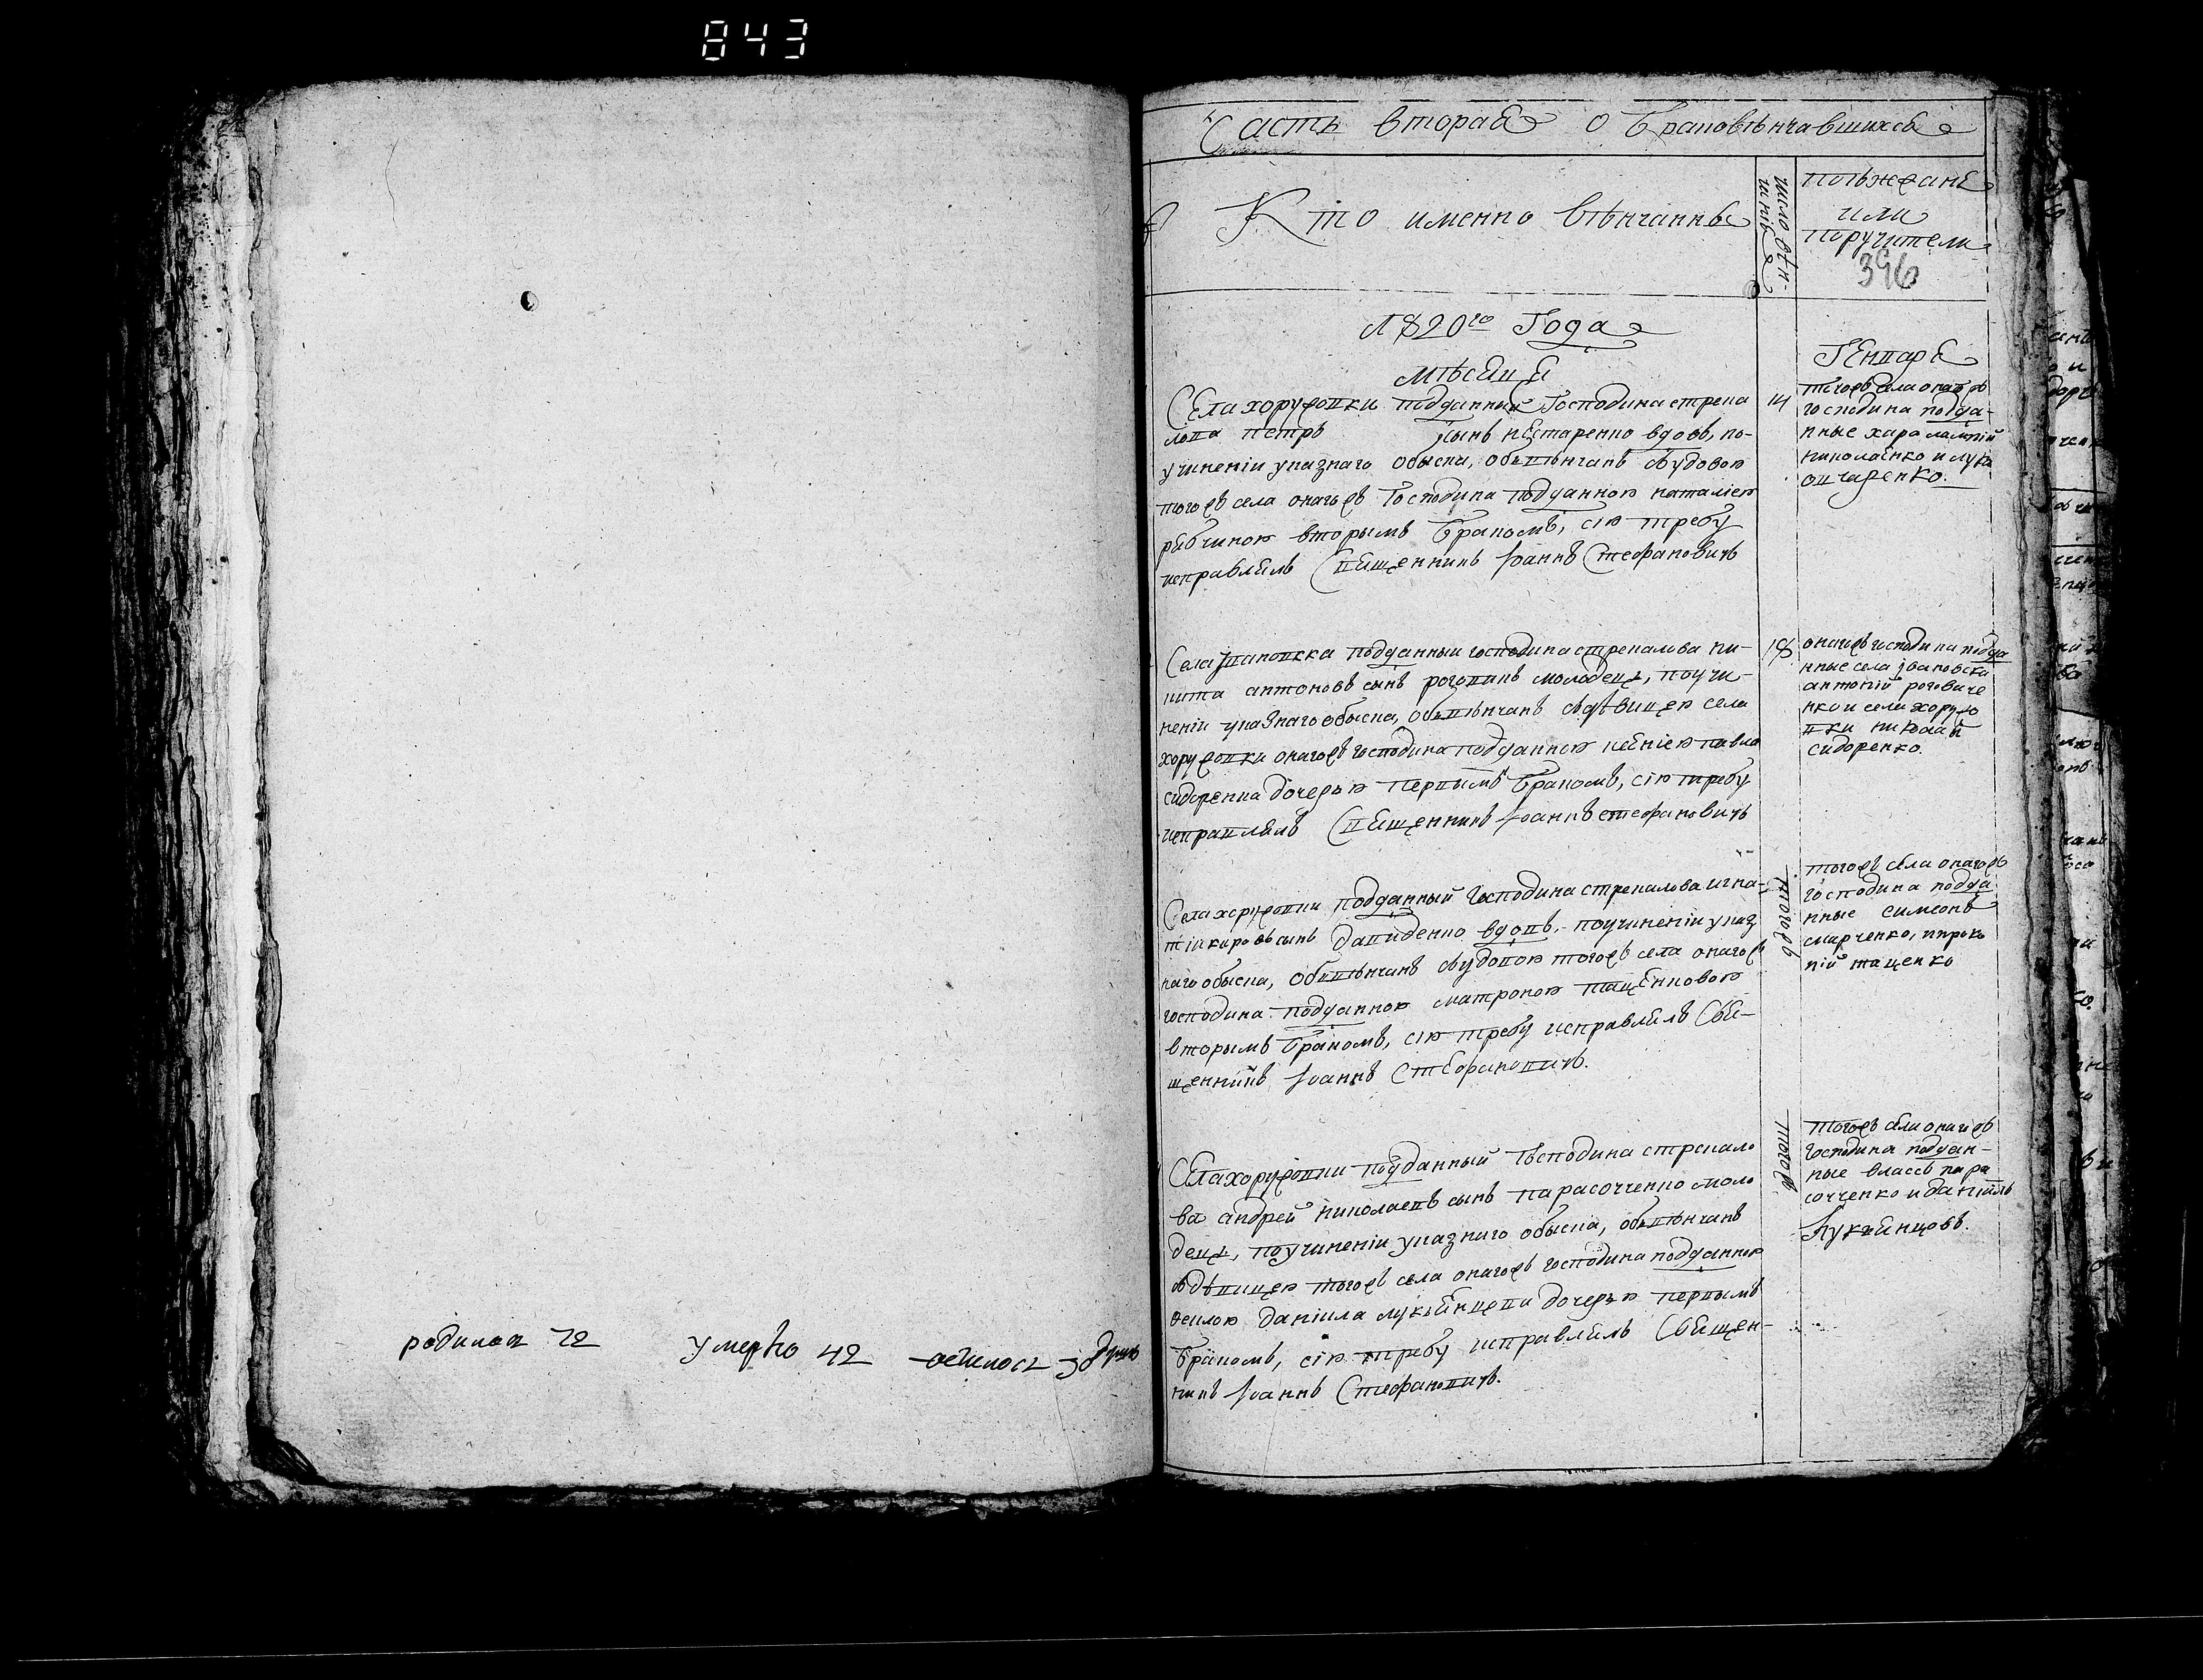 843
родилося 72 умерло 42 осталось 30 душъ
Часть вторая о браковѣнчавшихся
Кто именно вѣнчанны
число вѣн-
чанія
Поѣзжане
или
поручители
396
1820го Года
мѣсяця
Генваря
Села хоружовки подданный Господина стрека
лова петръ сынъ нестаренко вдовъ, по-
учиненіи указнаго обыска, обвѣнчанъ свдовою
тогожъ села онагожъ Господина подданною наталіею
рябчиною вторымъ бракомъ, сію требу
исправлялъ Священникъ Іоаннъ Стефановичъ
14
тогожъ села онагожъ
господина подда-
нные харалампій
николаенко и лука
овчаренко.
Села Івановска подданный господина стрекалова ни-
кита антоновъ сынъ роговикъ молодецъ, поучи-
неніи указнаго обыска, обвѣнчанъ сдѣвицею села
хоружовки онагожъ господина подданною ксѣніею павла
сидоренка дочерью первымъ бракомъ, сію требу
исправлялъ Священникъ Іоаннъ стефановичъ
18
онагожъ господина подда
нные села Івановска
антоній роговиче
нко и села хоружо
вки николай
сидоренко.
Села хоружовки подданный Господина стрекалова игна-
тій кировъ сынъ давиденко вдовъ, поучиненіи указ
наго обыска, обвѣнчанъ свдовою тогожъ села онагожъ
господина подданною матроною тацѣнковою
вторымъ бракомъ, сію требу исправлялъ Свя-
щенникъ Іоаннъ Стефановичъ.
тогожъ
тогожъ села онагожъ
господина подда
нные симеонъ
марченко, и проко
пій таценко
Села хоружовки подданный Господина стрекало
ва андрей николаевъ сынъ парасоченко моло
децъ, поучиненіи указнаго обыска, обвѣнчанъ
сдѣвицею тогожъ села онагожъ господина подданною
ѳеклою даніила лукьянцова дочерью первымъ
бракомъ, сію требу исправлялъ Священ-
никъ Іоаннъ Стефановичъ.
тогожъ
тогожъ села онагожъ
Господина поддан-
ные власъ пара
сочченко и даніилъ
Лукьянцовъ.